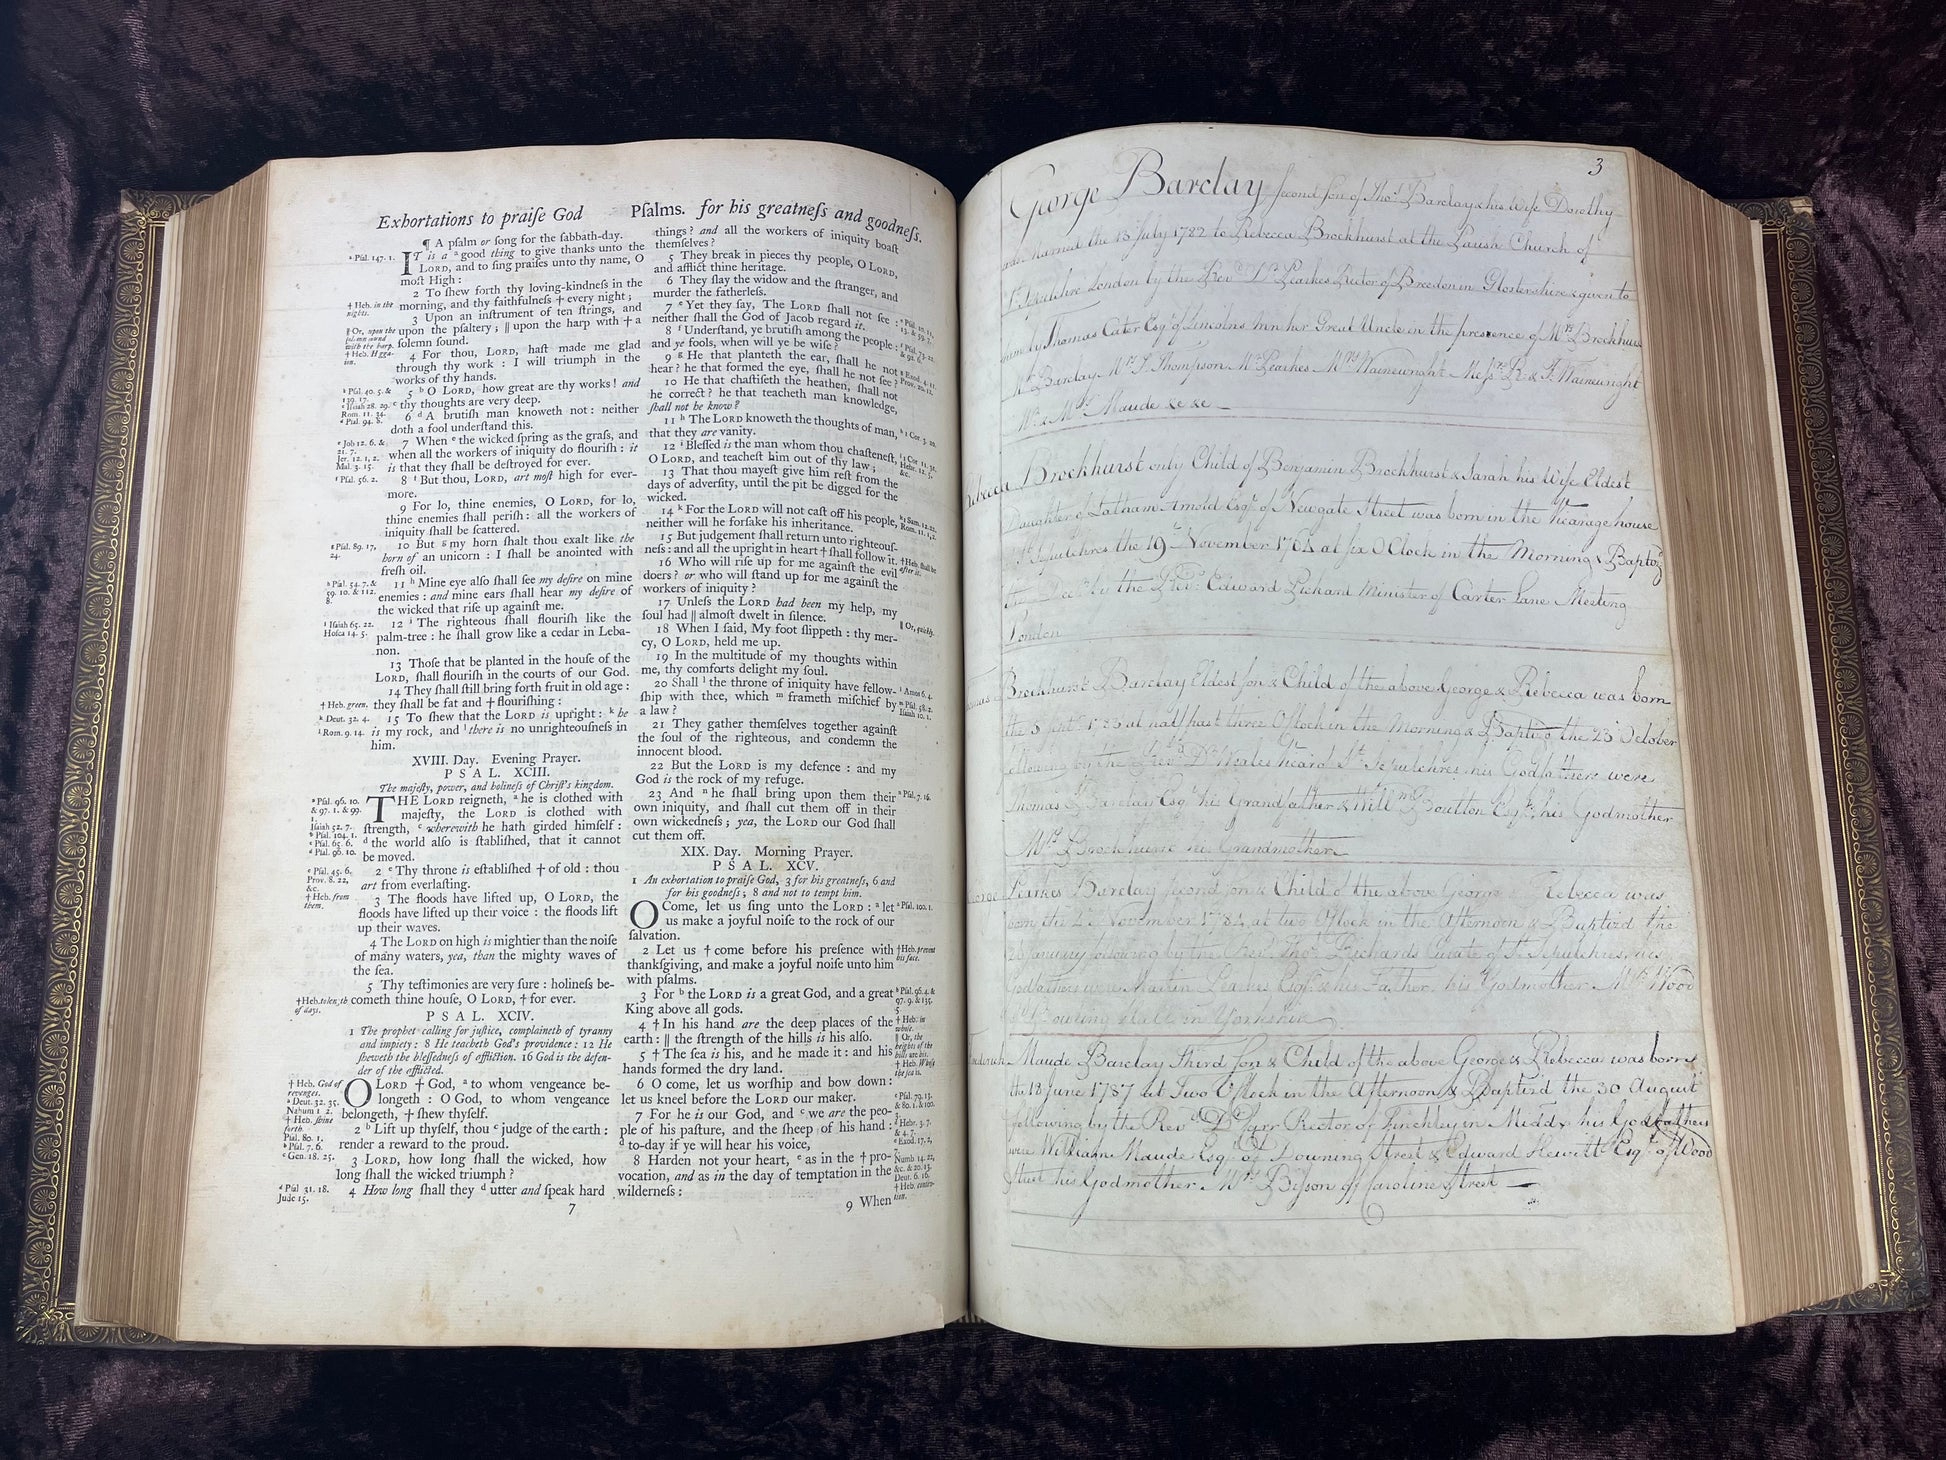 Exhortations to praiſe God
Pſalms. for his greatneſs and goodneſs.
¶ A pſalm or ſong for the ſabbath-day.
ᵃ Pſal. 147. 1.
IT is a ᵃ good thing to give thanks unto the
LORD, and to ſing praiſes unto thy name, O
moſt High :
2 To ſhew forth thy loving-kindneſs in the
† Heb. in the
nights.
morning, and thy faithfulneſs † every night ;
3 Upon an inſtrument of ten ſtrings, and
upon the pſaltery ; || upon the harp with † a
ſolemn ſound.
4 For thou, LORD, haſt made me glad
through thy work : I will triumph in the
works of thy hands.
ᵇ Pſal. 40. 5. &
139. 17.
ᶜ Iſaiah 28. 29.
Rom. 11. 34.
ᵈ Pſal. 94. 8.
5 ᵇ O LORD, how great are thy works ! and
ᶜ thy thoughts are very deep.
6 ᵈ A brutiſh man knoweth not : neither
doth a fool underſtand this.
ᵉ Job 12. 6. &
21. 7.
Jer. 12. 1, 2.
Mal. 3. 15.
7 When ᵉ the wicked ſpring as the graſs, and
when all the workers of iniquity do flouriſh : it
is that they ſhall be deſtroyed for ever.
ᶠ Pſal. 56. 2.
8 ᶠ But thou, LORD, art moſt high for ever-
more.
9 For lo, thine enemies, O LORD, for lo,
thine enemies ſhall periſh : all the workers of
iniquity ſhall be ſcattered.
ᵍ Pſal. 89. 17,
24.
10 But ᵍ my horn ſhalt thou exalt like the
horn of an unicorn : I ſhall be anointed with
freſh oil.
ʰ Pſal. 54. 7. &
59. 10. & 112.
8.
11 ʰ Mine eye alſo ſhall ſee my deſire on mine
enemies : and mine ears ſhall hear my deſire of
the wicked that riſe up againſt me.
ⁱ Iſaiah 65. 22.
Hoſea 14. 5.
12 ⁱ The righteous ſhall flouriſh like the
palm-tree : he ſhall grow like a cedar in Leba-
non.
13 Thoſe that be planted in the houſe of the
LORD, ſhall flouriſh in the courts of our God.
14 They ſhall ſtill bring forth fruit in old age :
† Heb. green.
they ſhall be fat and † flouriſhing :
ᵏ Deut. 32. 4.
ˡ Rom. 9. 14.
15 To ſhew that the LORD is upright : ᵏ he
is my rock, and ˡ there is no unrighteouſneſs in
him.
XVIII. Day. Evening Prayer.
PSAL. XCIII.
The majeſty, power, and holineſs of Chriſt's kingdom.
ᵃ Pſal. 96. 10.
& 97. 1. & 99.
Iſaiah 52. 7.
ᵇ Pſal. 104. 1.
ᶜ Pſal. 65. 6.
ᵈ Pſal. 96. 10.
THE LORD reigneth, ᵃ he is clothed with
majeſty, the LORD is clothed with
ſtrength, ᶜ wherewith he hath girded himſelf :
ᵈ the world alſo is ſtabliſhed, that it cannot
be moved.
ᵉ Pſal. 45. 6.
Prov. 8. 22,
&c.
† Heb. from
them.
2 ᵉ Thy throne is eſtabliſhed † of old : thou
art from everlaſting.
3 The floods have lifted up, O LORD, the
floods have lifted up their voice : the floods lift
up their waves.
4 The LORD on high is mightier than the noiſe
of many waters, yea, than the mighty waves of
the ſea.
5 Thy teſtimonies are very ſure : holineſs be-
of days.
cometh thine houſe, O LORD, † for ever.
PSAL. XCIV.
1 The prophet calling for juſtice, complaineth of tyranny
and impiety : 8 He teacheth God's providence : 12 He
ſheweth the bleſſedneſs of affliction. 16 God is the defen-
der of the afflicted.
† Heb. God of
revenges.
ᵃ Deut. 32. 35.
Nahum 1. 2.
† Heb. ſhine
forth.
Pſal. 80. 1.
ᵇ Pſal. 7. 6.
ᶜ Gen. 18. 25.
O LORD † God, ᵃ to whom vengeance be-
longeth : O God, to whom vengeance
belongeth, † ſhew thyſelf.
2 ᵇ Lift up thyſelf, thou ᶜ judge of the earth :
render a reward to the proud.
3 LORD, how long ſhall the wicked, how
long ſhall the wicked triumph ?
ᵈ Pſal 31. 18.
Jude 15.
4 How long ſhall they ᵈ utter and ſpeak hard
7
things ? and all the workers of iniquity boaſt
themſelves ?
5 They break in pieces thy people, O LORD,
and afflict thine heritage.
6 They ſlay the widow and the ſtranger, and
murder the fatherleſs.
7 ᵉ Yet they ſay, The LORD ſhall not ſee :
neither ſhall the God of Jacob regard it.
8 ᶠ Underſtand, ye brutiſh among the people :
and ye fools, when will ye be wiſe ?
9 ᵍ He that planteth the ear, ſhall he not
hear ? he that formed the eye, ſhall he not ſee ?
10 He that chaſtiſeth the heathen, ſhall not
he correct ? he that teacheth man knowledge,
ſhall not he know ?
11 ʰ The LORD knoweth the thoughts of man,
that they are vanity.
12 ⁱ Bleſſed is the man whom thou chaſteneſt,
O LORD, and teacheſt him out of thy law ;
13 That thou mayeſt give him reſt from the
days of adverſity, until the pit be digged for the
wicked.
14 ᵏ For the LORD will not caſt off his people,
neither will he forſake his inheritance.
15 But judgement ſhall return unto righteouſ-
neſs : and all the upright in heart † ſhall follow it.
16 Who will riſe up for me againſt the evil
doers ? or who will ſtand up for me againſt the
workers of iniquity ?
17 Unleſs the LORD had been my help, my
ſoul had || almoſt dwelt in ſilence.
|| Or, quickly.
18 When I ſaid, My foot ſlippeth : thy mer-
cy, O LORD, held me up.
19 In the multitude of my thoughts within
me, thy comforts delight my ſoul.
20 Shall ˡ the throne of iniquity have fellow-
ſhip with thee, which ᵐ frameth miſchief by
a law ?
ˡ Amos 6. 4.
ᵐ Pſal. 58. 2.
Iſaiah 10. 1.
21 They gather themſelves together againſt
the ſoul of the righteous, and condemn the
innocent blood.
22 But the LORD is my defence : and my
God is the rock of my refuge.
23 And ⁿ he ſhall bring upon them their
ⁿ Pſal. 7. 16.
own iniquity, and ſhall cut them off in their
own wickedneſs ; yea, the LORD our God ſhall
cut them off.
XIX. Day. Morning Prayer.
PSAL. XCV.
1 An exhortation to praiſe God, 3 for his greatneſs, 6 and
for his goodneſs ; 8 and not to tempt him.
O Come, let us ſing unto the LORD : ᵃ let
ᵃ Pſal. 100. 1.
us make a joyful noiſe to the rock of our
ſalvation.
2 Let us † come before his preſence with
† Heb. prevent
his face.
thankſgiving, and make a joyful noiſe unto him
with pſalms.
3 For ᵇ the LORD is a great God, and a great
King above all gods.
ᵇ Pſal. 96. 4. &
97. 9. & 135.
5.
4 † In his hand are the deep places of the
earth : || the ſtrength of the hills is his alſo.
5 † The ſea is his, and he made it : and his
hands formed the dry land.
6 O come, let us worſhip and bow down :
let us kneel before the LORD our maker.
7 For he is our God, and ᶜ we are the peo-
ple of his paſture, and the ſheep of his hand :
ᵈ to-day if ye will hear his voice,
8 Harden not your heart, ᵉ as in the † pro-
vocation, and as in the day of temptation in the
wilderneſs :
9 When
3
George Barclay ſecond ſon of Thoˢ. Barclay & his Wife Dorothy
Married the 13 July 1782 to Rebecca Brockhurst at the Parish Church of
London by the Revᵈ. Dʳ. Pearkes Rector of Breedon in Glosterſhire & given to
by Thomas Cater Esqʳ. of Lincolns Inn her Great Uncle in the presence of Mʳˢ Brockhurst
Barclay Mʳˢ T. Thompson Mʳ Pearkes Mʳˢ Wainewright Meſsʳˢ R. & T. Wainewright
Mʳ. & Mʳˢ Maude &c &c
Rebecca Brockhurst only Child of Benjamin Brockhurst & Sarah his Wife Eldest
Daughter of Latham Arnold Esqʳ. of Newgate Street was born in the Vicarage house
Sᵗ. Sepulchres the 19 November 1764 at ſix O Clock in the Morning & Baptizᵈ
by the Revᵈ. Edward Pickard Minister of Carter Lane Meeting
London
Brockhurst Barclay Eldest ſon & Child of the above George & Rebecca was born
the 5 Septʳ. 1783 at half past three O'Clock in the Morning & Baptizᵈ the 23 October
following by the Revᵈ. Dʳ Weales Vicar of Sᵗ. Sepulchres, his Godfathers were
Thomas Barclay Esqʳ. his Grandfather & Willᵐ Boulton Esqʳ. his Godmother
Mʳˢ Brockhurst his Grandmother
George Pearkes Barclay ſecond ſon & Child of the above George Rebecca was
born the November 1784 at two O'Clock in the Afternoon & Baptizd the
January following by the Revᵈ. Thoˢ. Richards Curate of Sᵗ. Sepulchres, his
Godfathers were Martin Pearkes Esqʳ. & his Father, his Godmother Mʳˢ Wood
in Yorkshire
Frederick Maude Barclay Third ſon & Child of the above George & Rebecca was born
the 18 June 1787 at Two O'Clock in the Afternoon & Baptizd the 30 August
following by the Revᵈ. Dʳ Rector of Finchley in Middx his Godfathers
were William Maude Esqʳ. of Downing Street & Edward Hewitt Esqʳ. of Wood
Street his Godmother Mʳˢ Biſson of Caroline Street